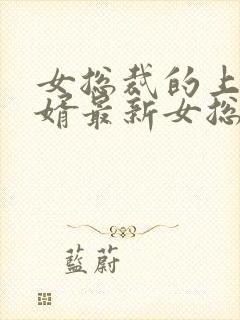 女总裁的上
婿最新女总
藍蔚